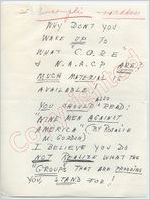 WHY DON'T YOU
WAKE UP TO
WHAT C.O.R.E
& N.A.A.C.P ARE?
MUCH MATERIAL
AVAILABLE.
ALSO
YOU SHOULD READ:
"NINE MEN AGAINST
AMERICA" (BY ROSALIE
M. GORDON)
I BELIEVE YOU DO
NOT REALIZE WHAT THE
GROUPS THAT ARE PRODDING
YOU, STAND FOR!